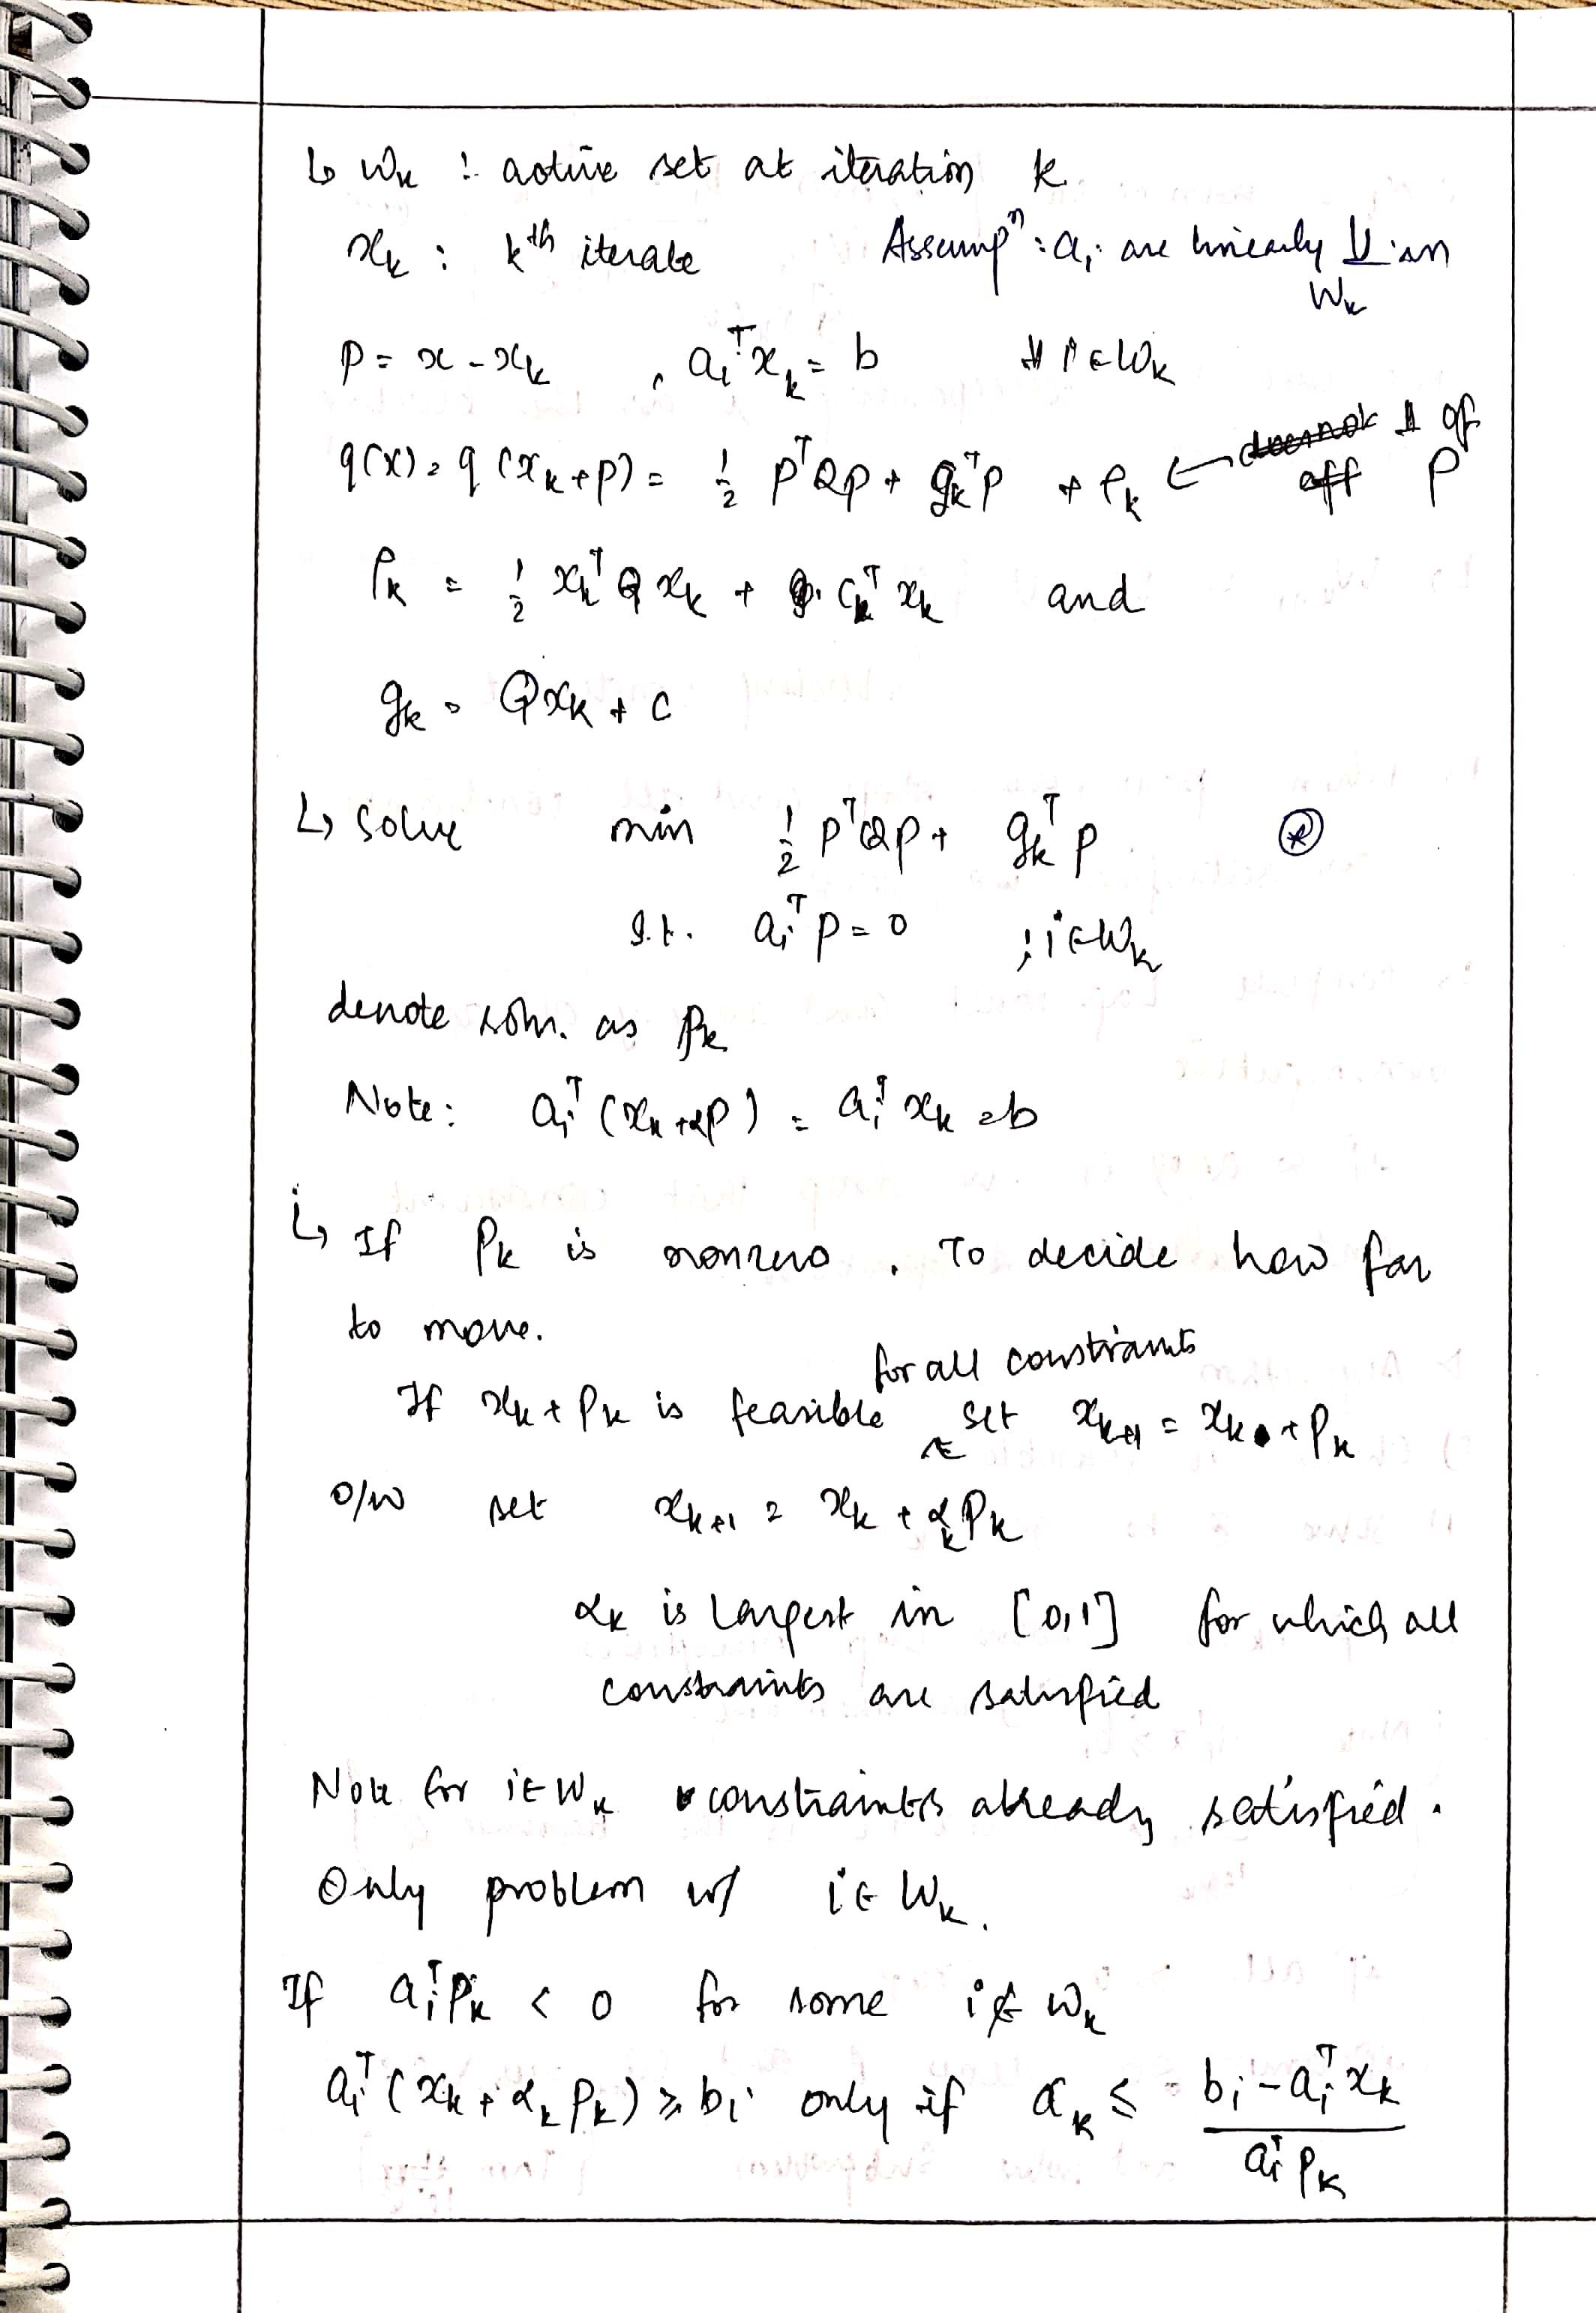 ↳ W_k : active set at iteration k
x_k : k^th iterate Assump^n : a_i are linearly ⫫ in W_k
p = x - x_k , a_i^T x_k = b ∀ i ∈ W_k
q(x) = q(x_k + p) = 1/2 p^T Q p + g_k^T p + ρ_k ← ⫫ of p
ρ_k = 1/2 x_k^T Q x_k + c_k^T x_k and
g_k = Q x_k + c
↳ Solve min 1/2 p^T Q p + g_k^T p ⊛
s.t. a_i^T p = 0 ; i ∈ W_k
denote soln. as p_k
Note: a_i^T (x_k + αp) = a_i^T x_k = b
↳ If p_k is nonzero . To decide how far
to move.
If x_k + p_k is feasible for all constraints set x_k+1 = x_k + p_k
o/w set x_k+1 = x_k + α_k p_k
α_k is largest in [0,1] for which all
constraints are satisfied
Note for i ∈ W_k constraints already satisfied.
Only problem w/ i ∈ W_k.
If a_i^T p_k < 0 for some i ∉ W_k
a_i^T (x_k + α_k p_k) ≥ b_i only if α_k ≤ (b_i - a_i^T x_k) / (a_i^T p_k)